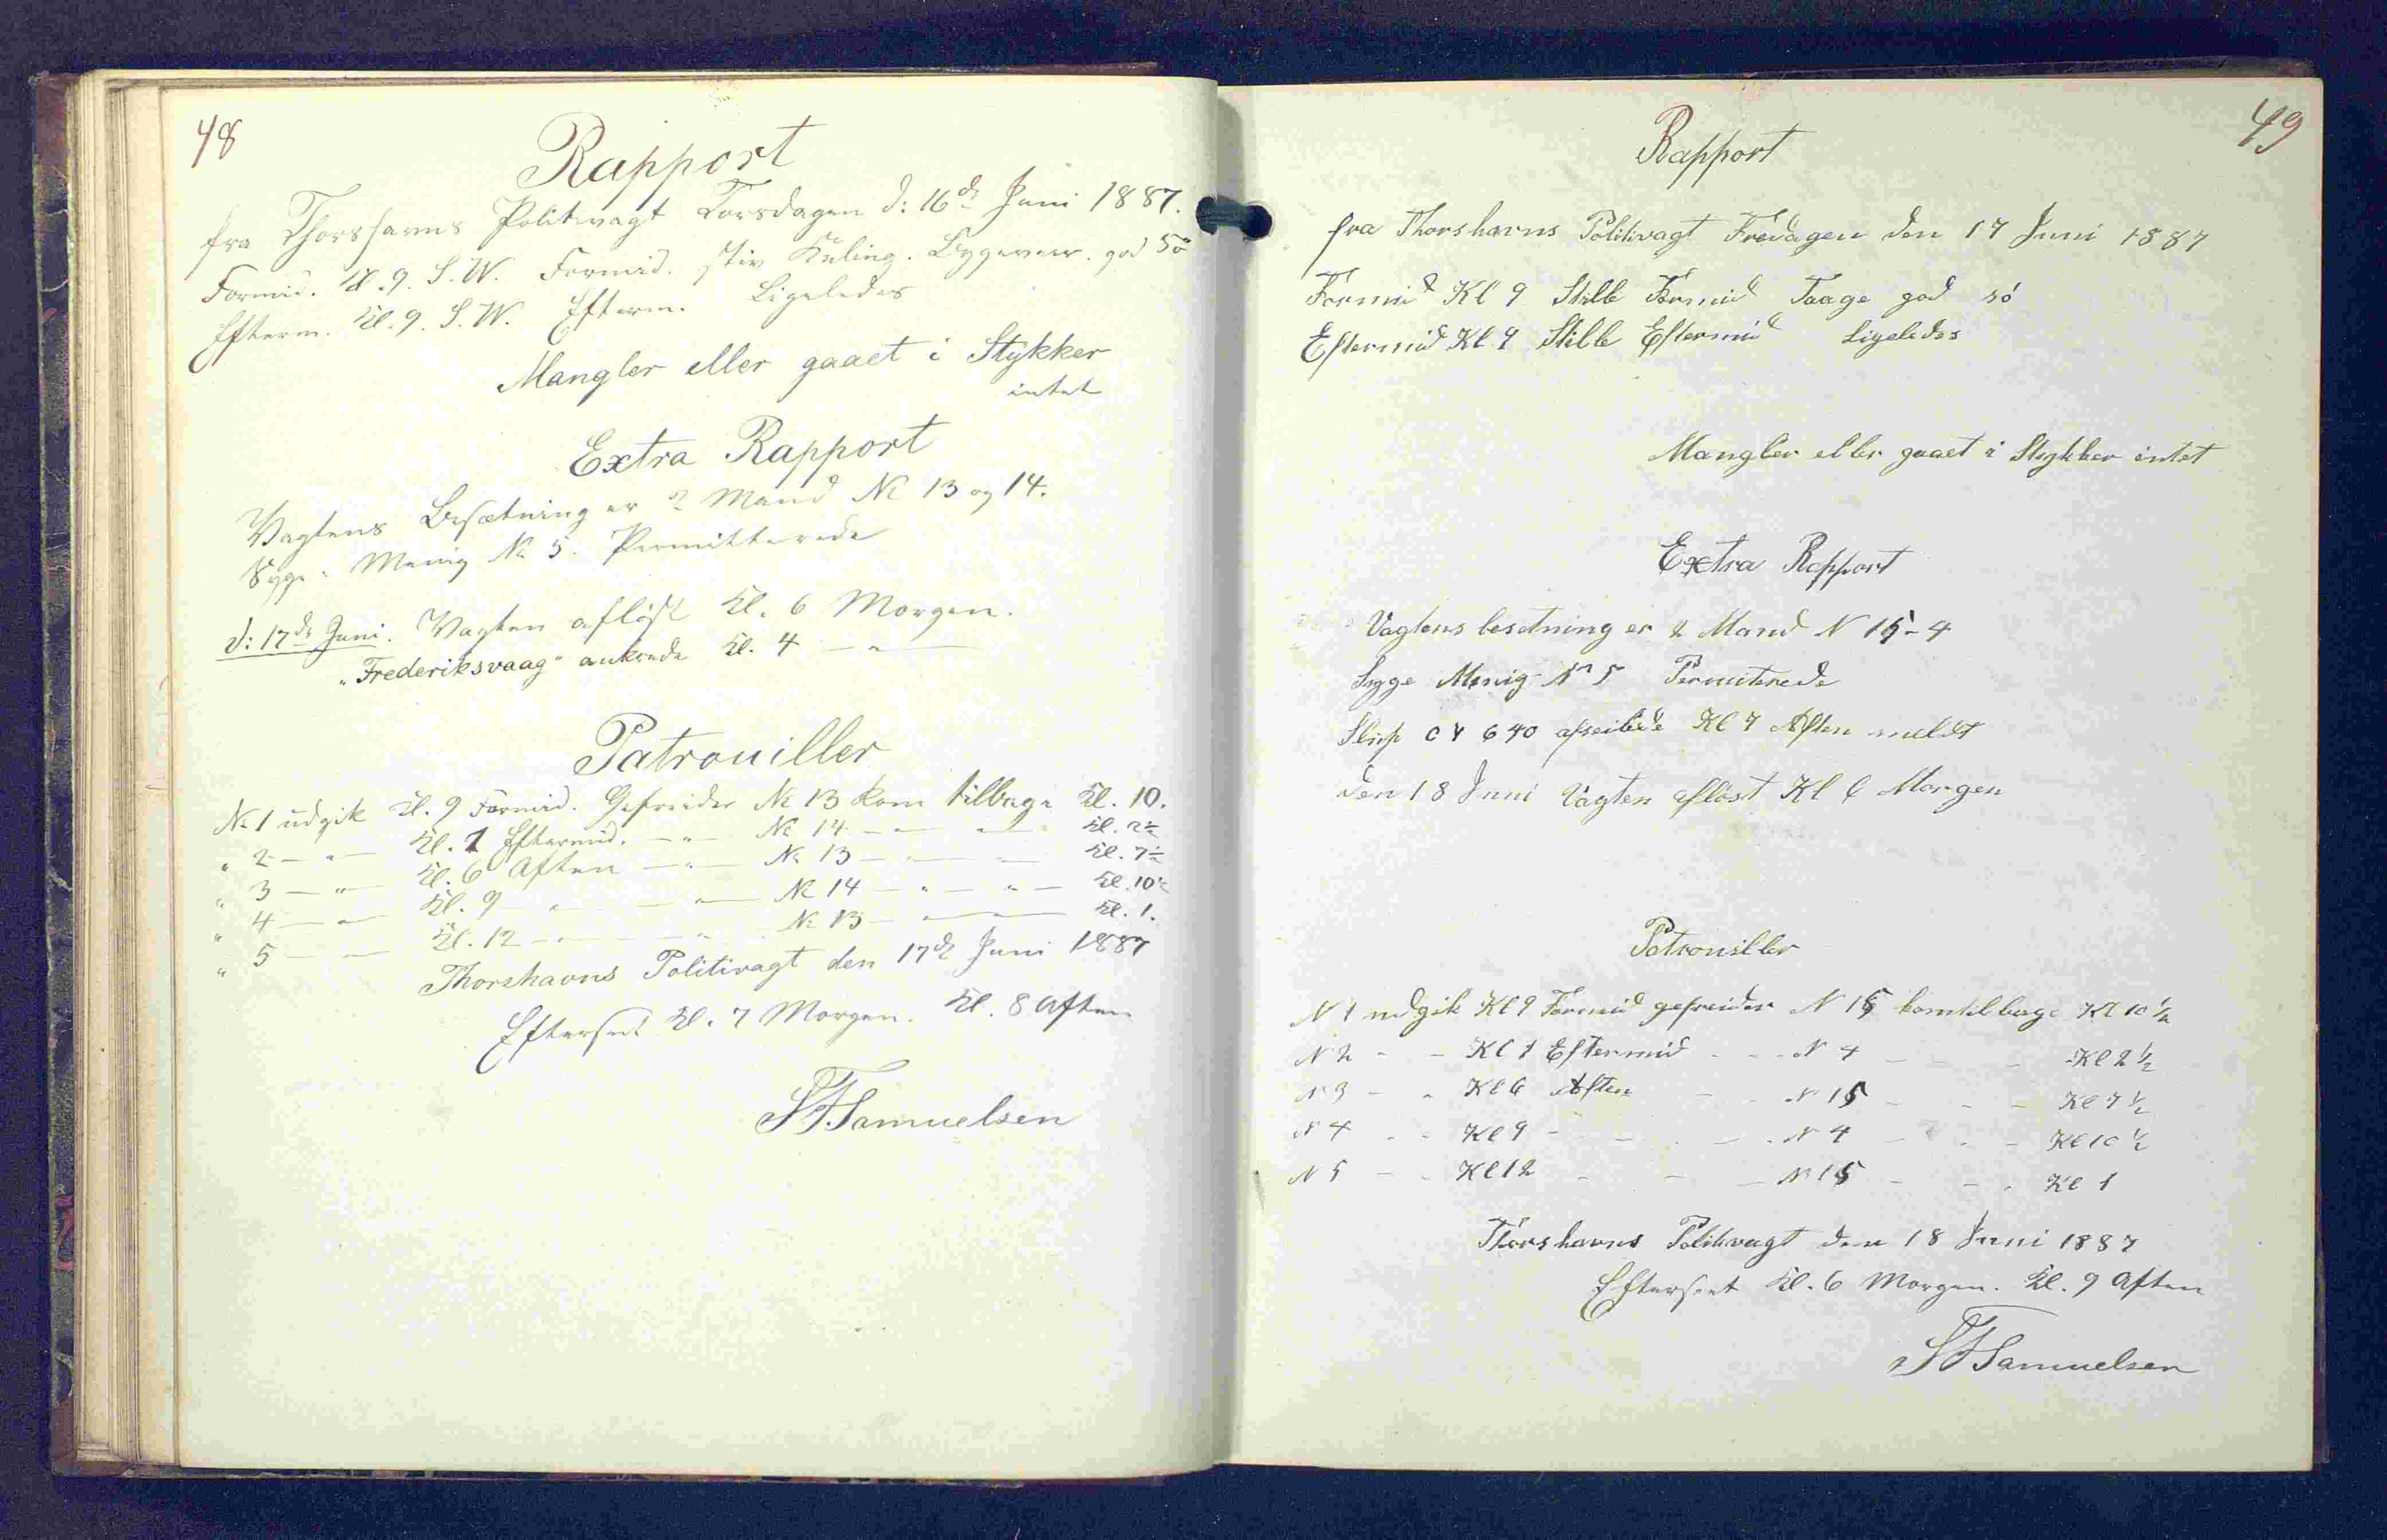 48
Rapport
fra Thorshavns Politivagt Torsdagen d: 16de Juni 1887.
Formid. Kl. 9. S.W. Formid. stiv Kuling. Bygeveir. god Sö
Efterm. Kl. 9. S.W. Efterm. Ligeledes
Mangler eller gaaet i Stykker
intet
Extra Rapport
Vagtens Besætning er 2 Mand No 13 og 14.
Syge: Menig No 5. Permitterede
d: 17de Juni. Vagten aflöst Kl. 6 Morgen.
"Frederiksvaag" ankrede Kl. 4 — " —
Patrouiller
No 1 udgik Kl. 9 Formid. Gefreider No 13 kom tilbage Kl. 10.
" 2 — " — Kl. 1 Eftermid. — " — No 14 — " — Kl. 2½
" 3 — " — Kl. 6 Aften — " — No 13 — " — Kl. 7½
" 4 — " — Kl. 9 — " — " — No 14 — " — " — Kl. 10½
" 5 — " — Kl. 12 — " — " — No 13 — " — Kl. 1.
Thorshavns Politivagt den 17de Juni 1887
Efterseet Kl. 7 Morgen. Kl. 8 Aften
SFSamuelsen
49
Rapport
fra Thorshavns Politivagt Fredagen den 17 Juni 1887
Formid Kl 9 Stille Formid Taage god sö
Eftermid Kl 9 Stille Eftermid Ligeledes
Mangler eller gaaet i Stykker intet
Extra Rapport
Vagtens besetning er 2 Mand N 15-4
Syge Menig No 5 Permiterede
Slup 640 afseilede Kl 7 Aften meldt
den 18 Juni Vagten aflöst Kl 6 Morgen
Patrouiller
N 1 udgik Kl 9 Formid gefreider N 15 kom tilbage Kl 10 ½
N 2 - - Kl 1 Eftermid - - N 4 - - Kl 2 ½
N 3 - - Kl 6 Aften - - N 15 - - - Kl 7 ½
N 4 - - Kl 9 - - - - N 4 - - - Kl 10 ½
N 5 - - Kl 12 - - - N 15 - - - Kl 1
Thorshavns Politivagt den 18 Juni 1887
Efterseet Kl. 6 Morgen. Kl. 9 Aften
SFSamuelsen